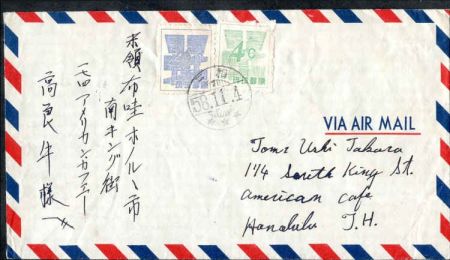 米領布哇ホノルヽ市
南キング街
一一四アメリカンカフェー
高良牛様
4¢
三和
58.11.4
VIA AIR MAIL
Toms Ushi Takara
114 South King St.
american cafe
Honolulu T.H.